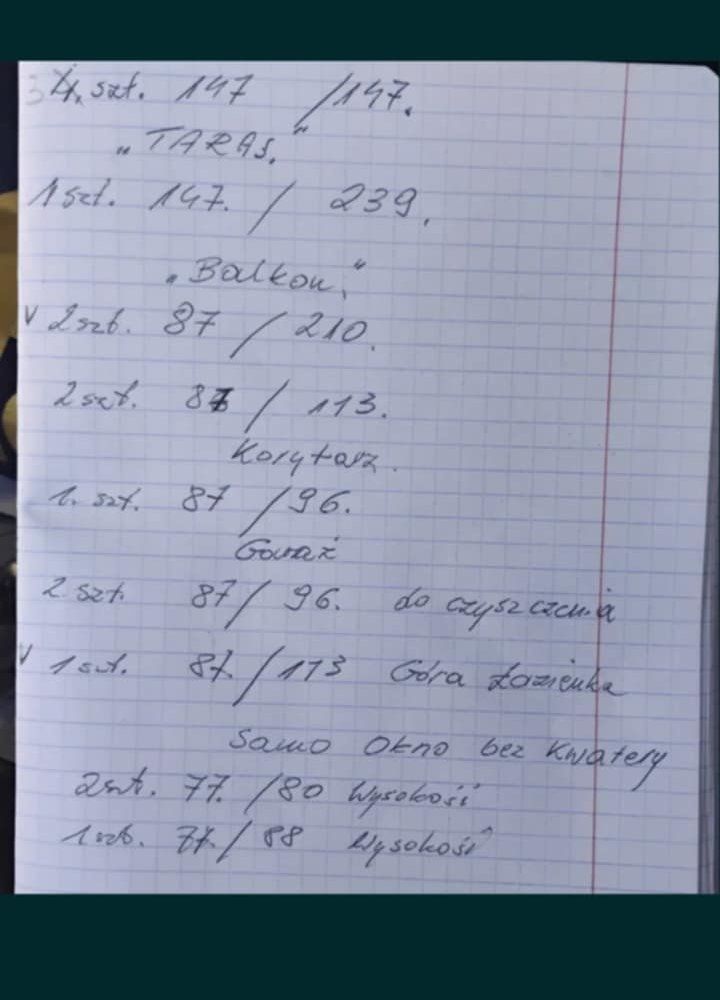 4. szt. 147 / 147.
„TARAS."
1 szt. 147. / 239.
„Balkon."
V 2 szt. 87 / 210.
2 szt. 87 / 113.
Korytarz.
1. szt. 87 / 96.
Garaż
2 szt. 87 / 96. do czyszczenia
V 1 szt. 87. / 113 Góra Łazienka
Samo Okno bez Kwatery
2 szt. 77. / 80 Wysokość
1 szt. 77. / 88 Wysokość